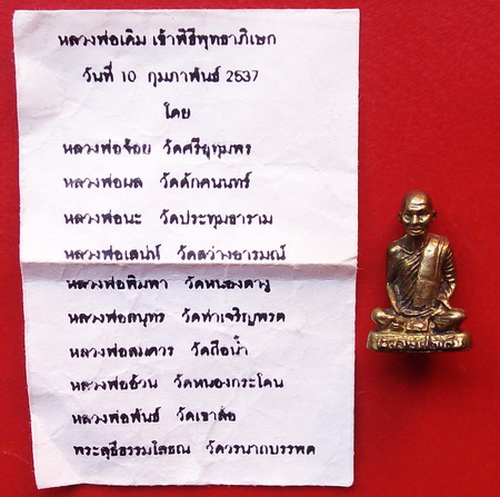 หลวงพ่อเดิม เข้าพิธีพุทธาภิเษก
วันที่ 10 กุมภาพันธ์ 2537
โดย
หลวงพ่อจ้อย วัดศรีอุทุมพร
หลวงพ่อผล วัดดักคนนทร์
หลวงพ่อนะ วัดประทุมธาราม
หลวงพ่อเสน่ห์ วัดสว่างอารมณ์
หลวงพ่อพิมพา วัดหนองตางู
หลวงพ่อสนุทร วัดท่าเจริญพรต
หลวงพ่อสมควร วัดถือน้ำ
หลวงพ่ออ้วน วัดหนองกระโดน
หลวงพ่อพันธ์ วัดเขาล้อ
พระสุธีธรรมโสธณ วัดวรนาถบรรพต